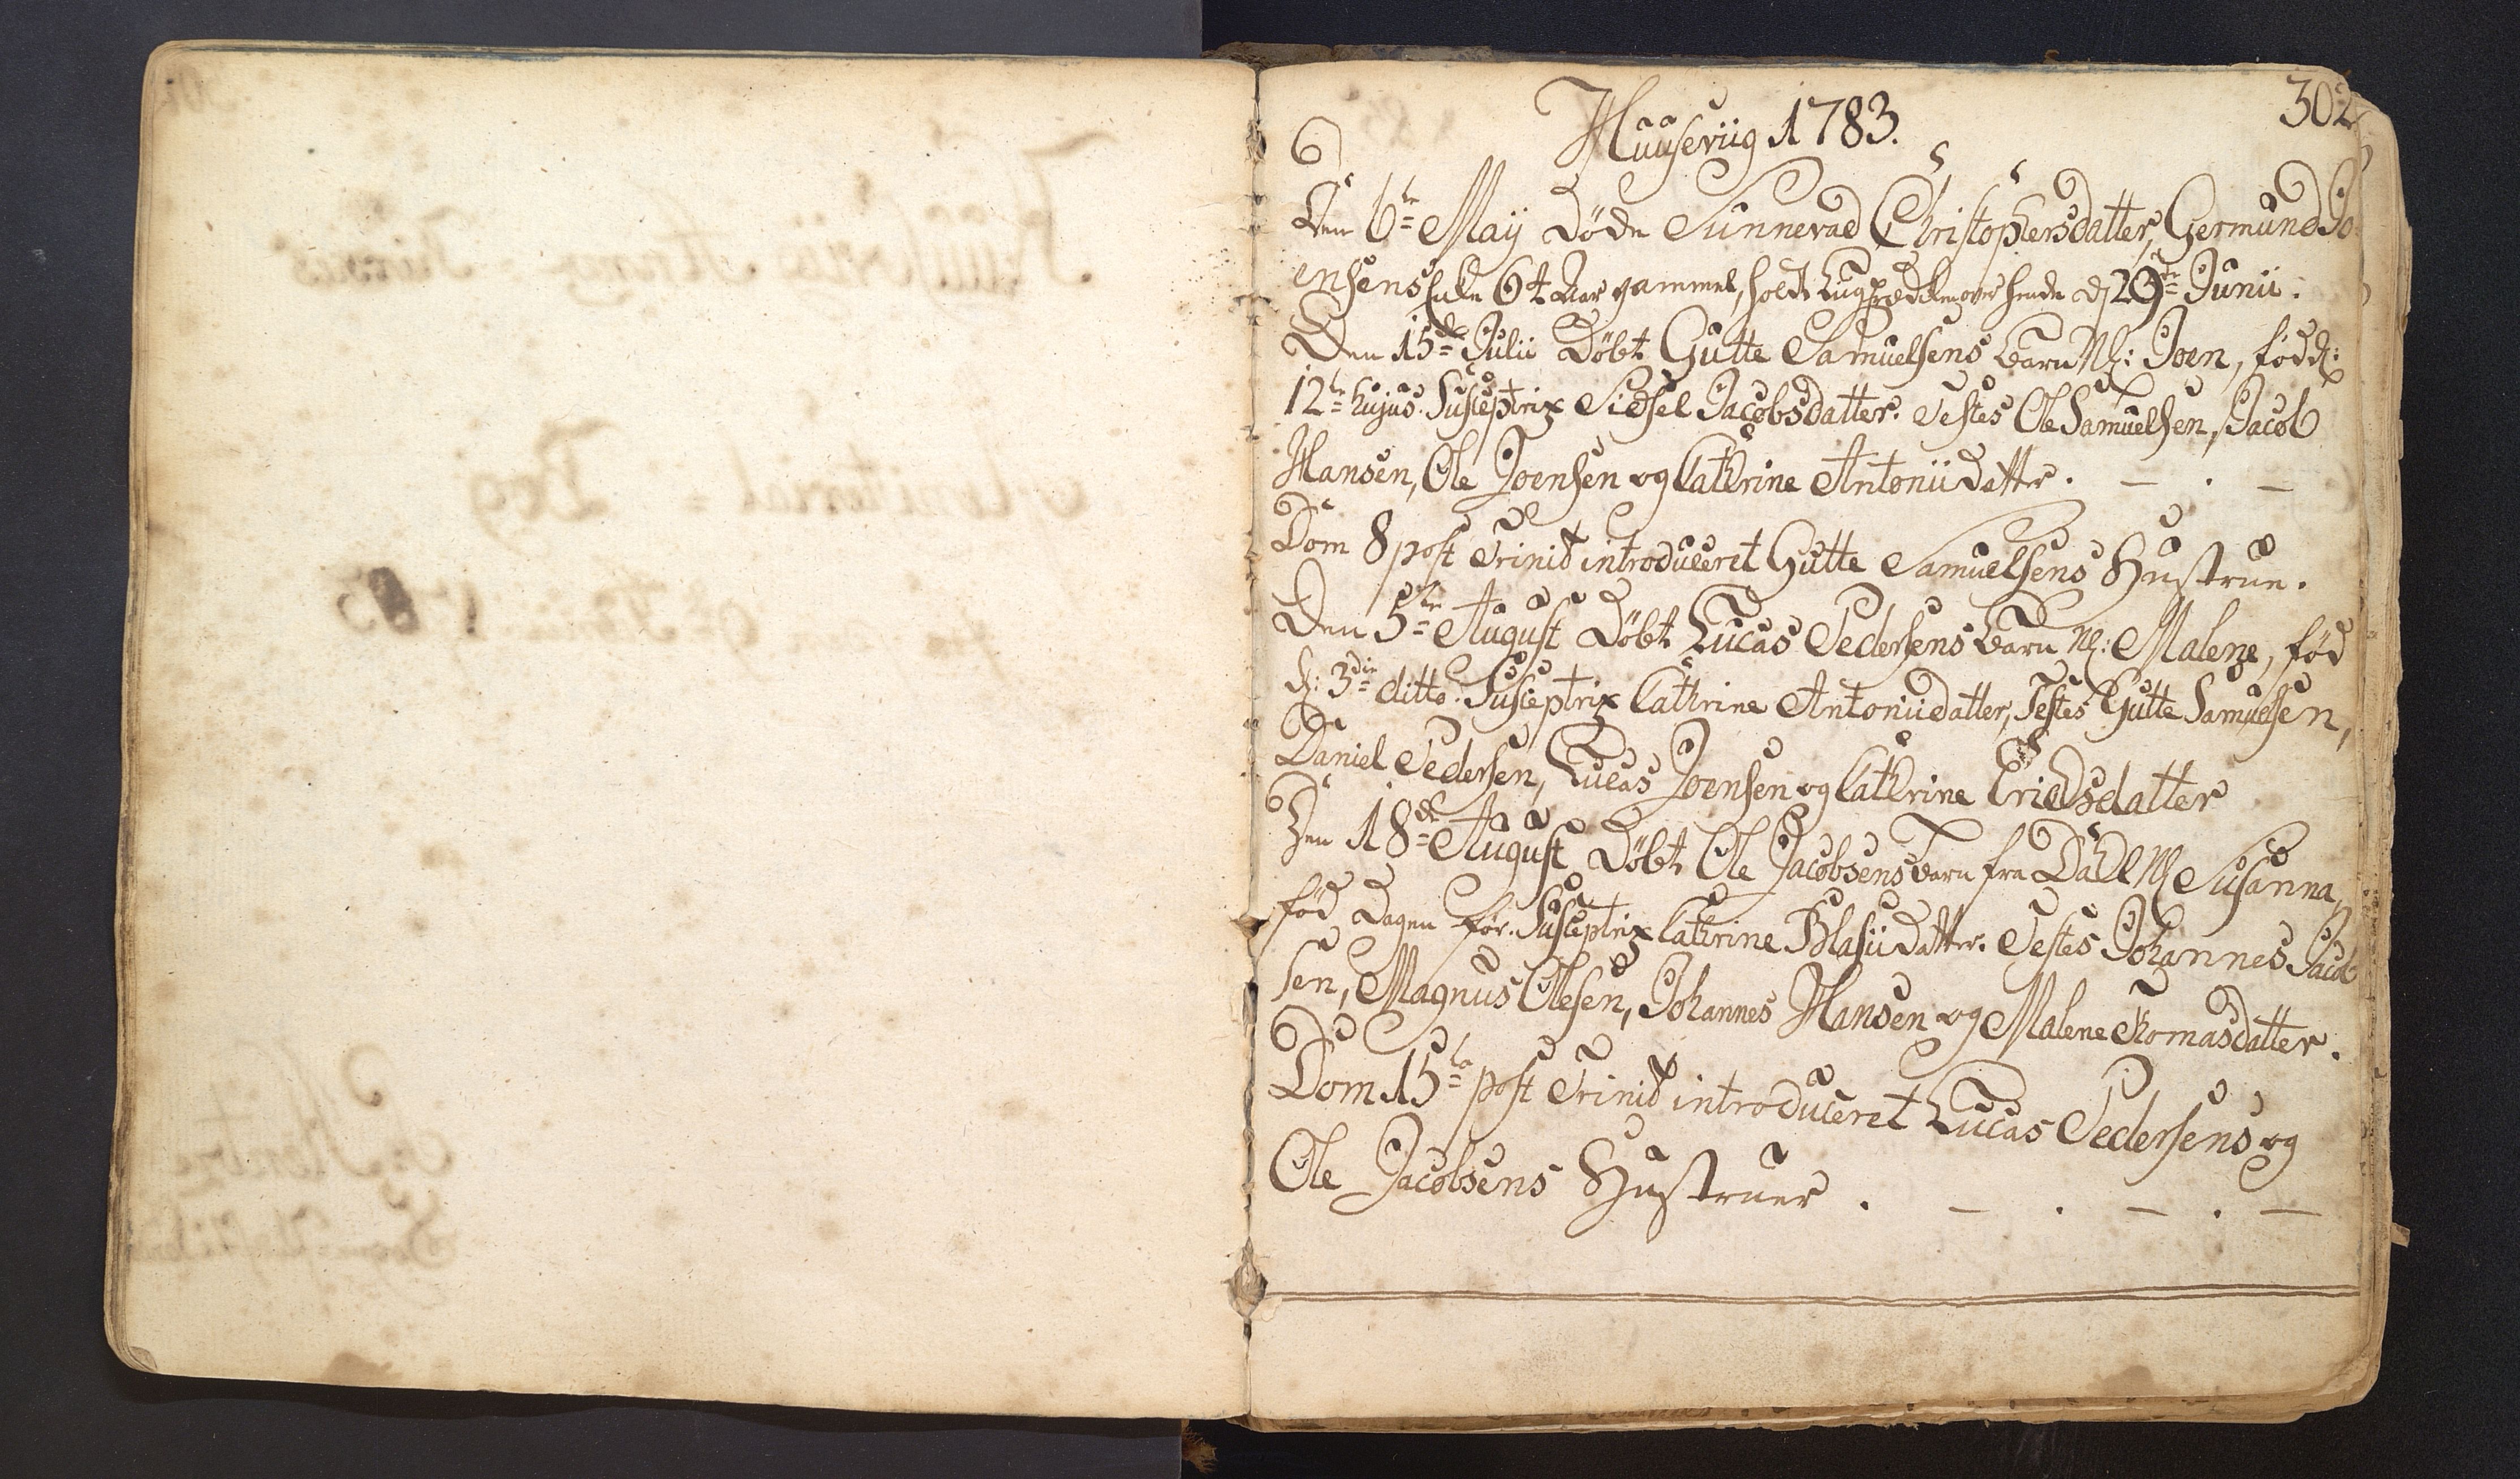 302
Huuseviig 1783.
Den 6te Maÿ Døde Sunnevad Christophersdatter, Germund Jo
ensens Enke 64 Aar gammel, holdt Liigprædiken over hende d 29te Junii.
Den 15de Julii Døbt Gutte Samuelsens Barn N: Joen, født d:
12te hujus. Susceptrix Sidsel Jacobsdatter. Testes Ole Samuelsen, Jacob
Hansen, Ole Joensen og Cathrine Antoniidatter. — . —
Dom 8 post Trinit introduceret Gutte Samuelsens Hustrue.
Den 5te August Døbt Lucas Pedersens Barn N: Malene, fød
d: 3die ditto. Susceptrix Cathrine Antoniidatter, Testes Gutte Samuelsen,
Daniel Pedersen, Lucas Joensen og Cathrine
Den 18de August Døbt Ole Jacobsens Barn fra Dahl N Susanna,
fød Dagen før. Susceptrix Cathrine Blasiidatter. Testes Johannes Jacob
sen, Magnus Olesen, Johannes Hansen og Malene Thomasdatter.
Dom 15ta post Trinit introduceret Lucas Pedersens og
Ole Jacobsens Hustruer . — . — . —